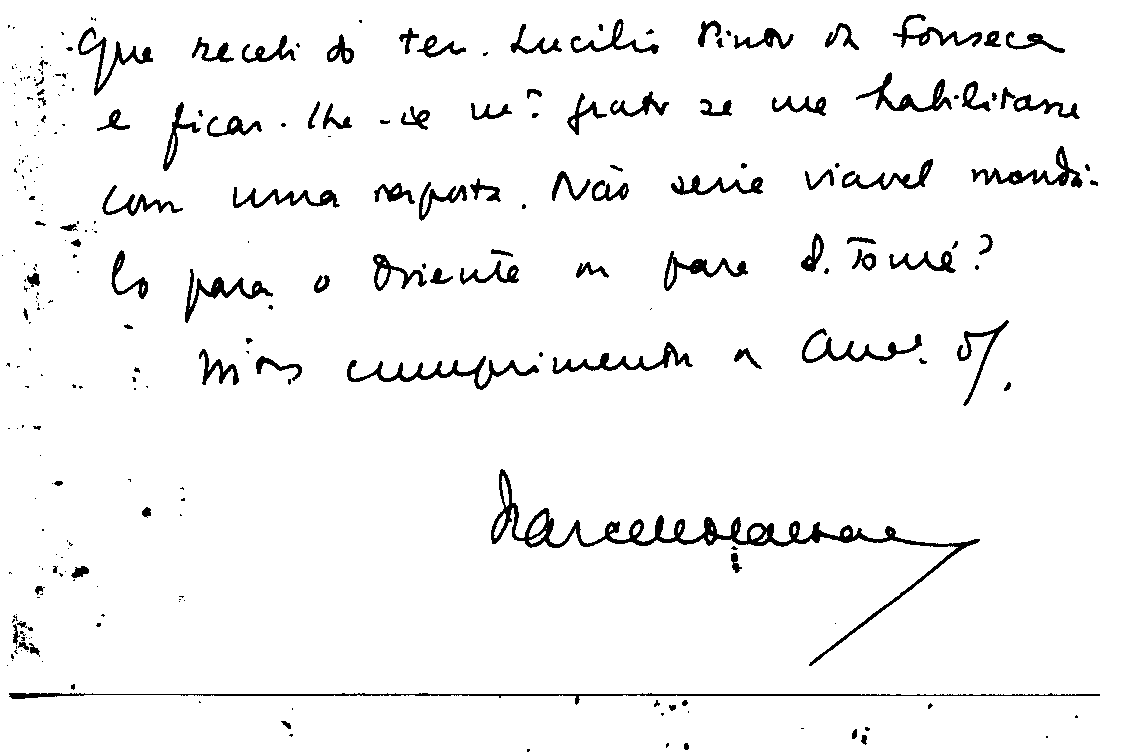 que recebi do ten. Lucilio Pinto da Fonseca
e ficar-lhe-ia mto grato se me habilitasse
com uma resposta. Não seria viavel mandá-
lo para o Oriente ou para S. Tomé?
Mtos cumprimentos
Marcello Caetano